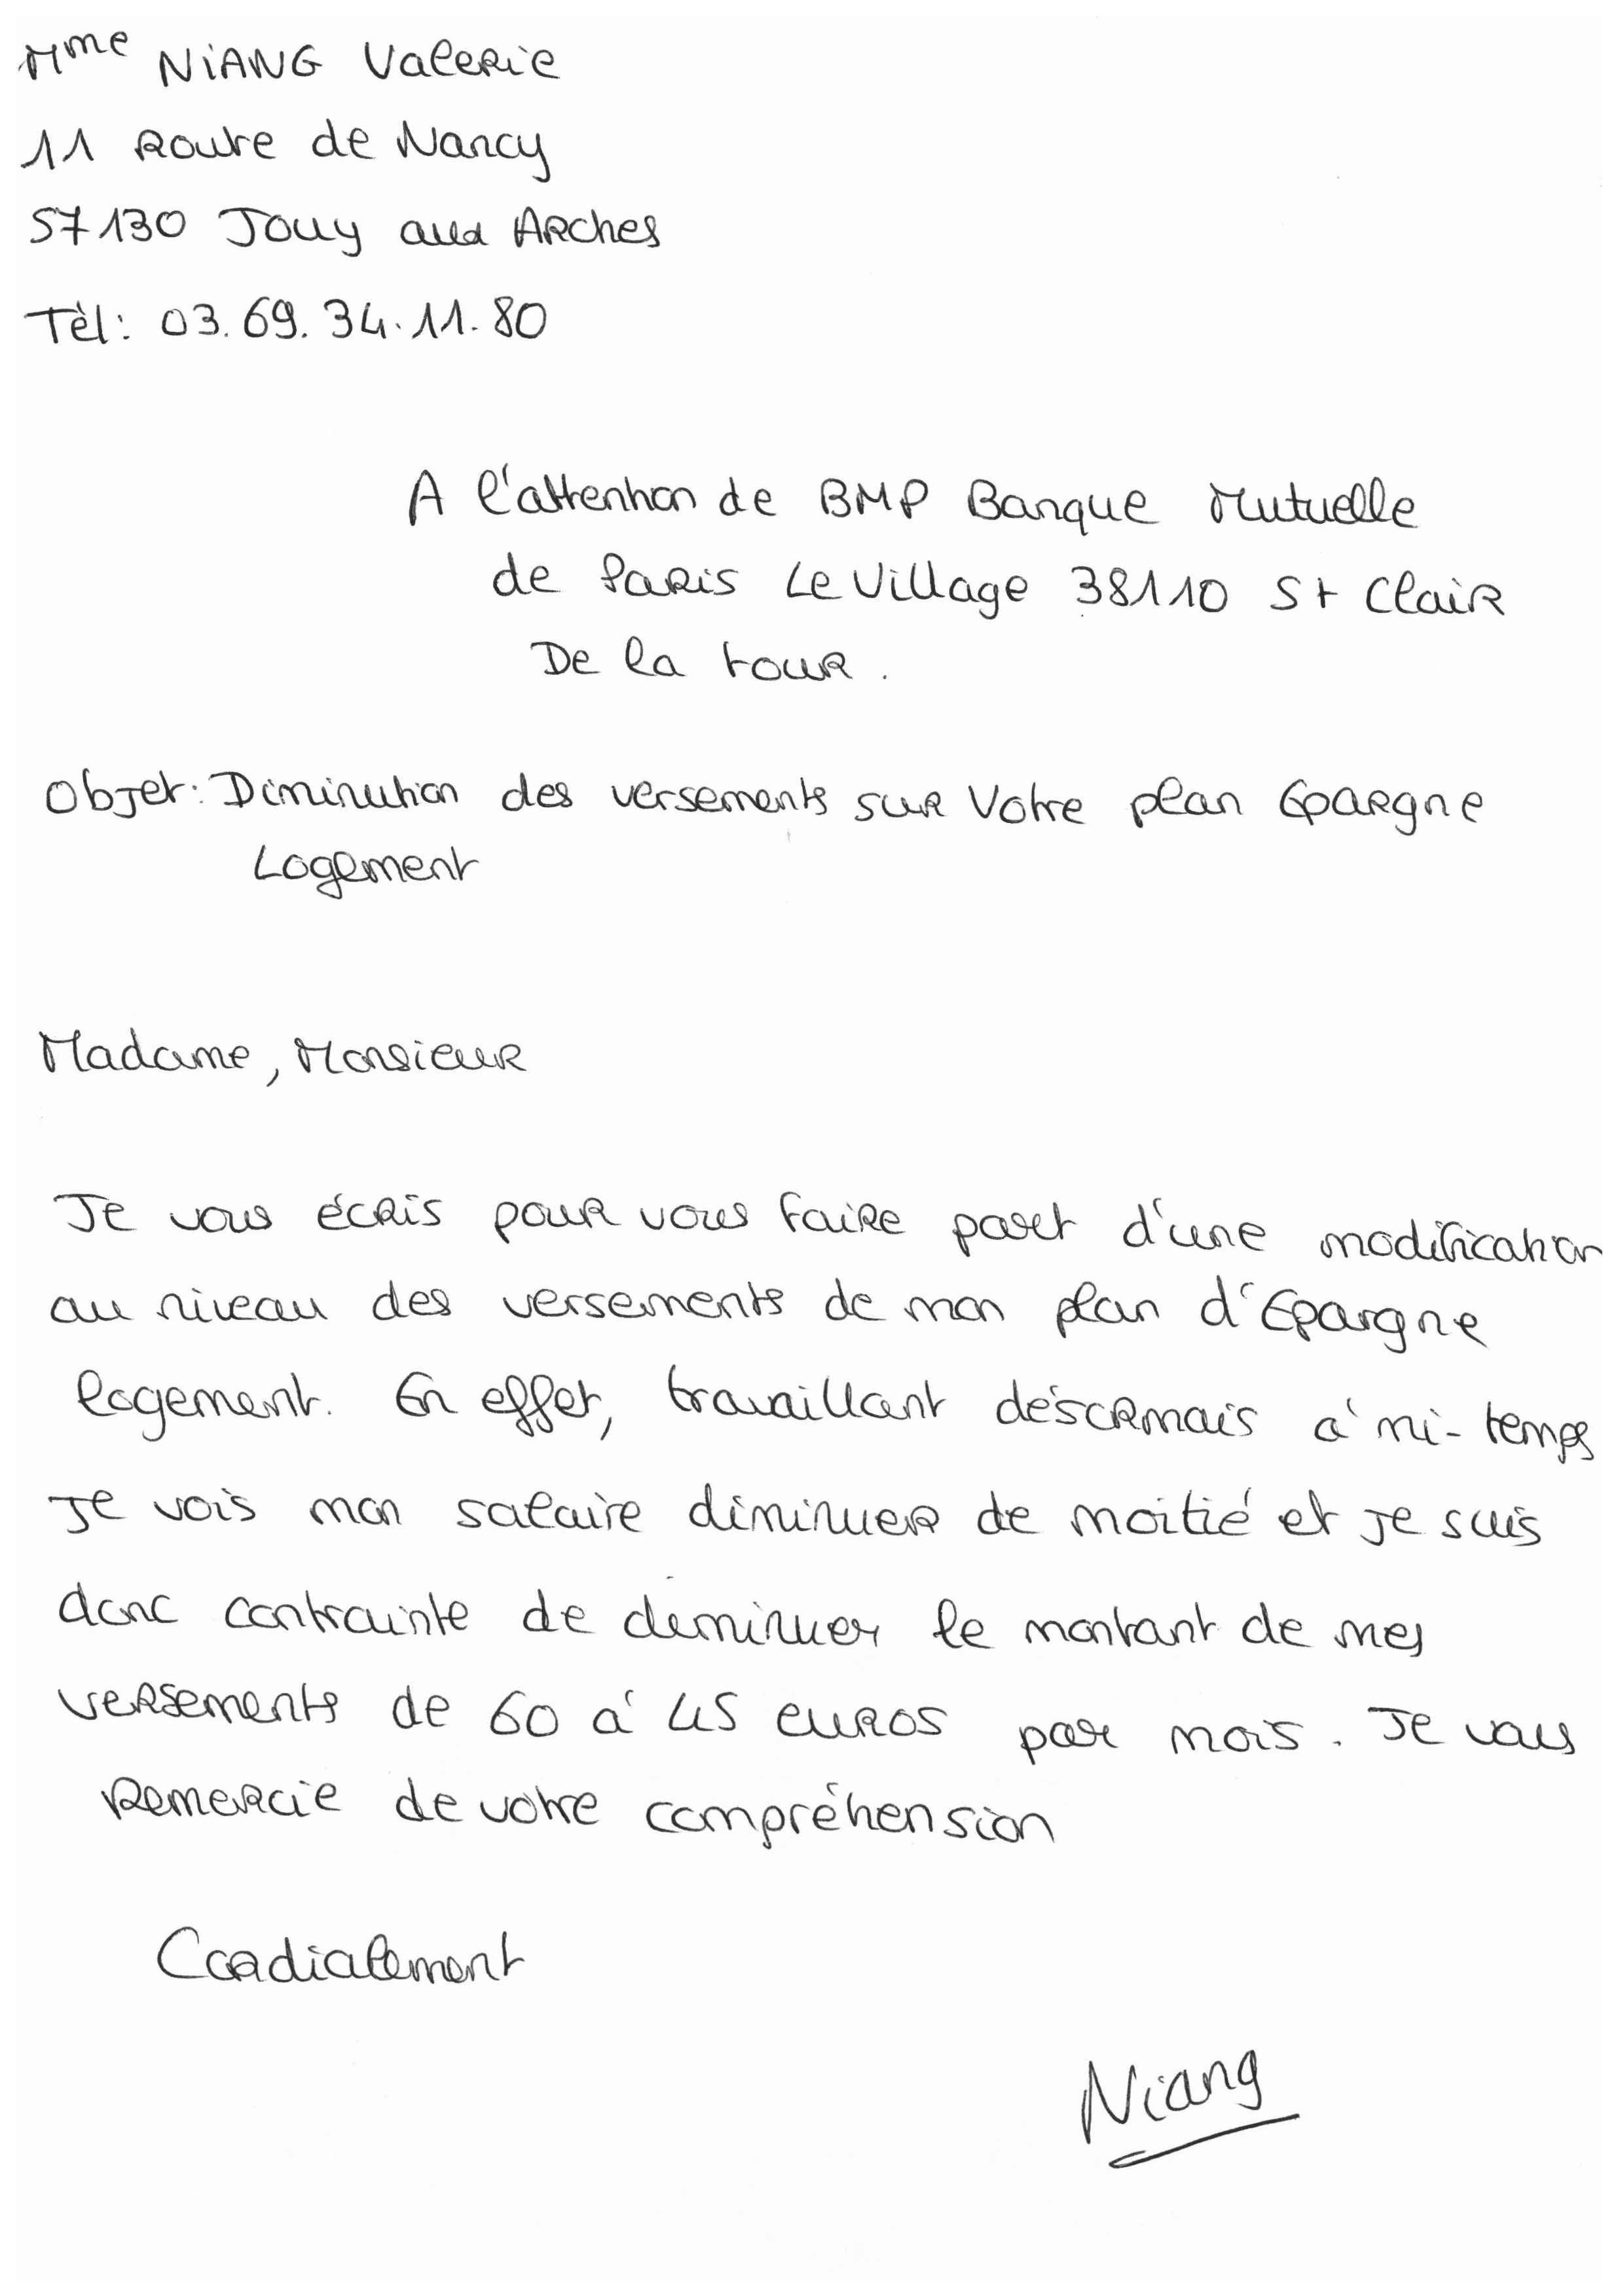 Mme NIANG Valerie
11 Route de Nancy
57130 Jouy aux Arches
Tèl: 03.69.34.11.80
A l'attention de BMP Banque Mutuelle
de Paris Le Village 38110 St Clair
De la tour.
Objet: Diminution des versements sur Votre plan Epargne
Logement
Madame, Monsieur
Je vous écris pour vous faire part d'une modification
au niveau des versements de mon plan d'Epargne
logement. En effet, travaillant désormais à mi-temps
Je vois mon salaire diminuer de moitié et je suis
donc contrainte de diminuer le montant de mes
versements de 60 à 45 euros par mois. Je vous
Remercie de votre compréhension
Cordialement
Niang